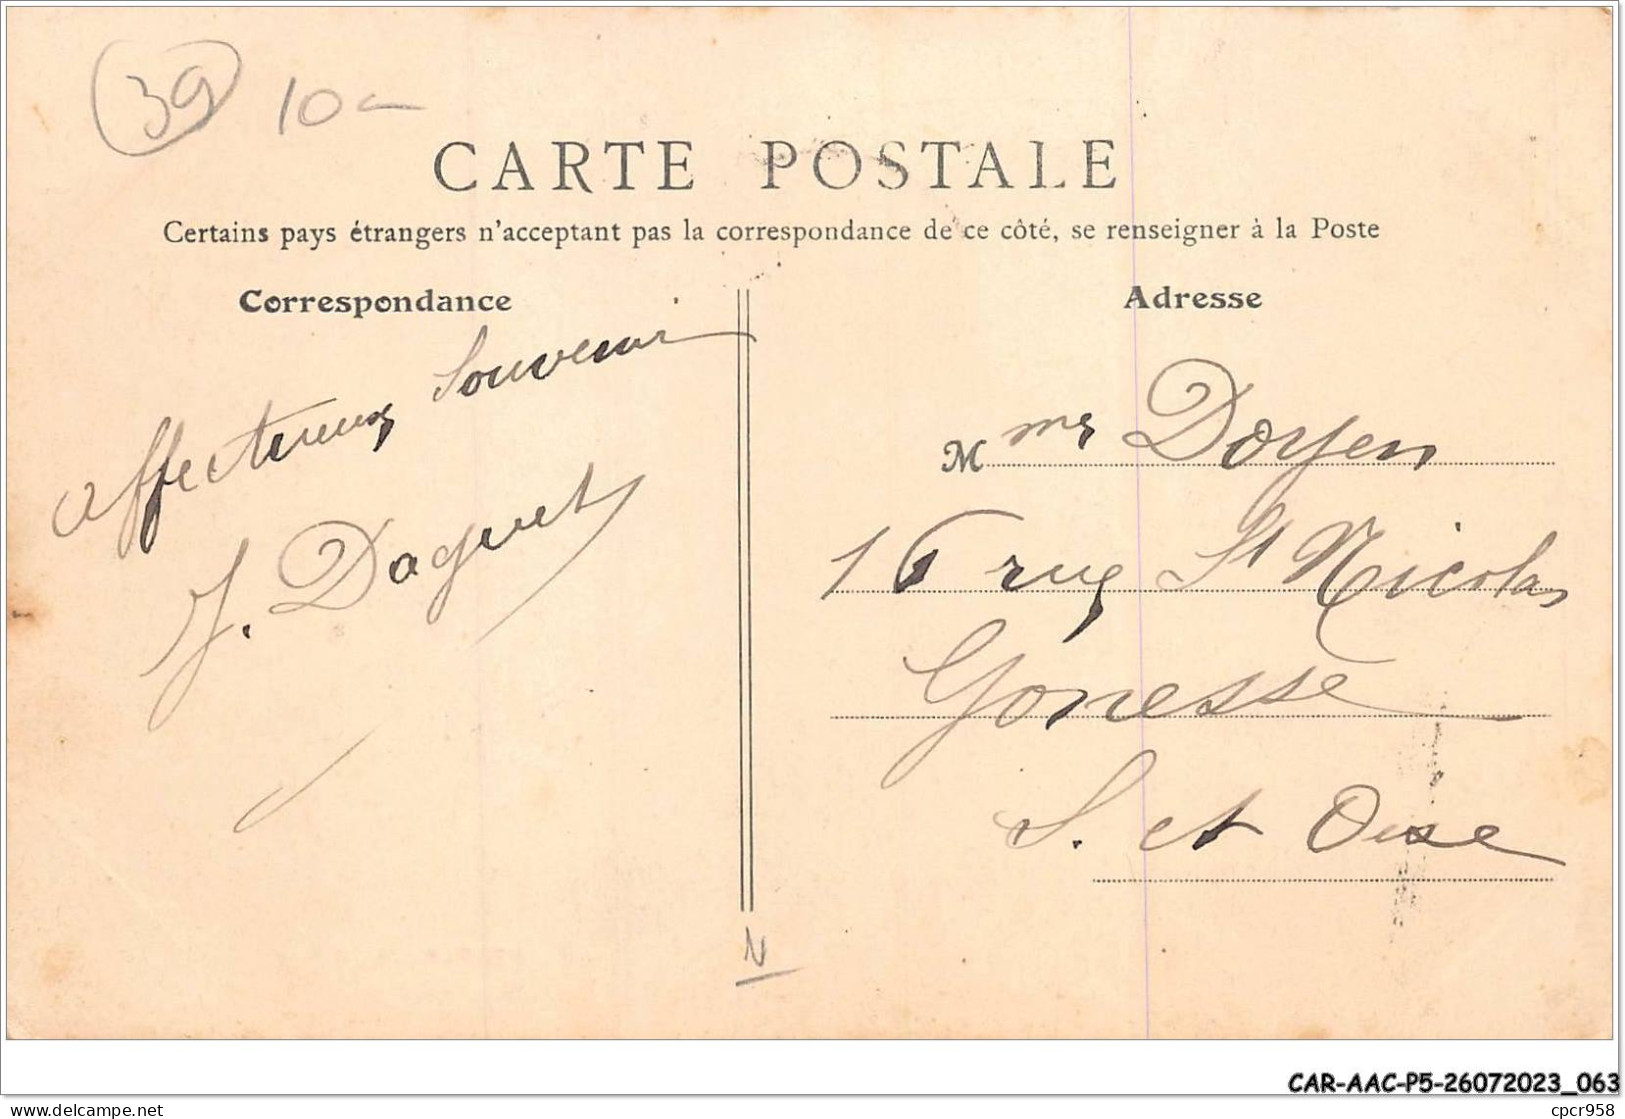 39 10-
CARTE POSTALE
Certains pays étrangers n'acceptant pas la correspondance de ce côté, se renseigner à la Poste
Correspondance
Affectueux Souvenir
J. Daguet
Adresse
Mme Doyen
16 rue St Nicolas
Gonesse
S. et Oise
N
CAR-AAC-P5-26072023_063
delcampe.net
cpcr958